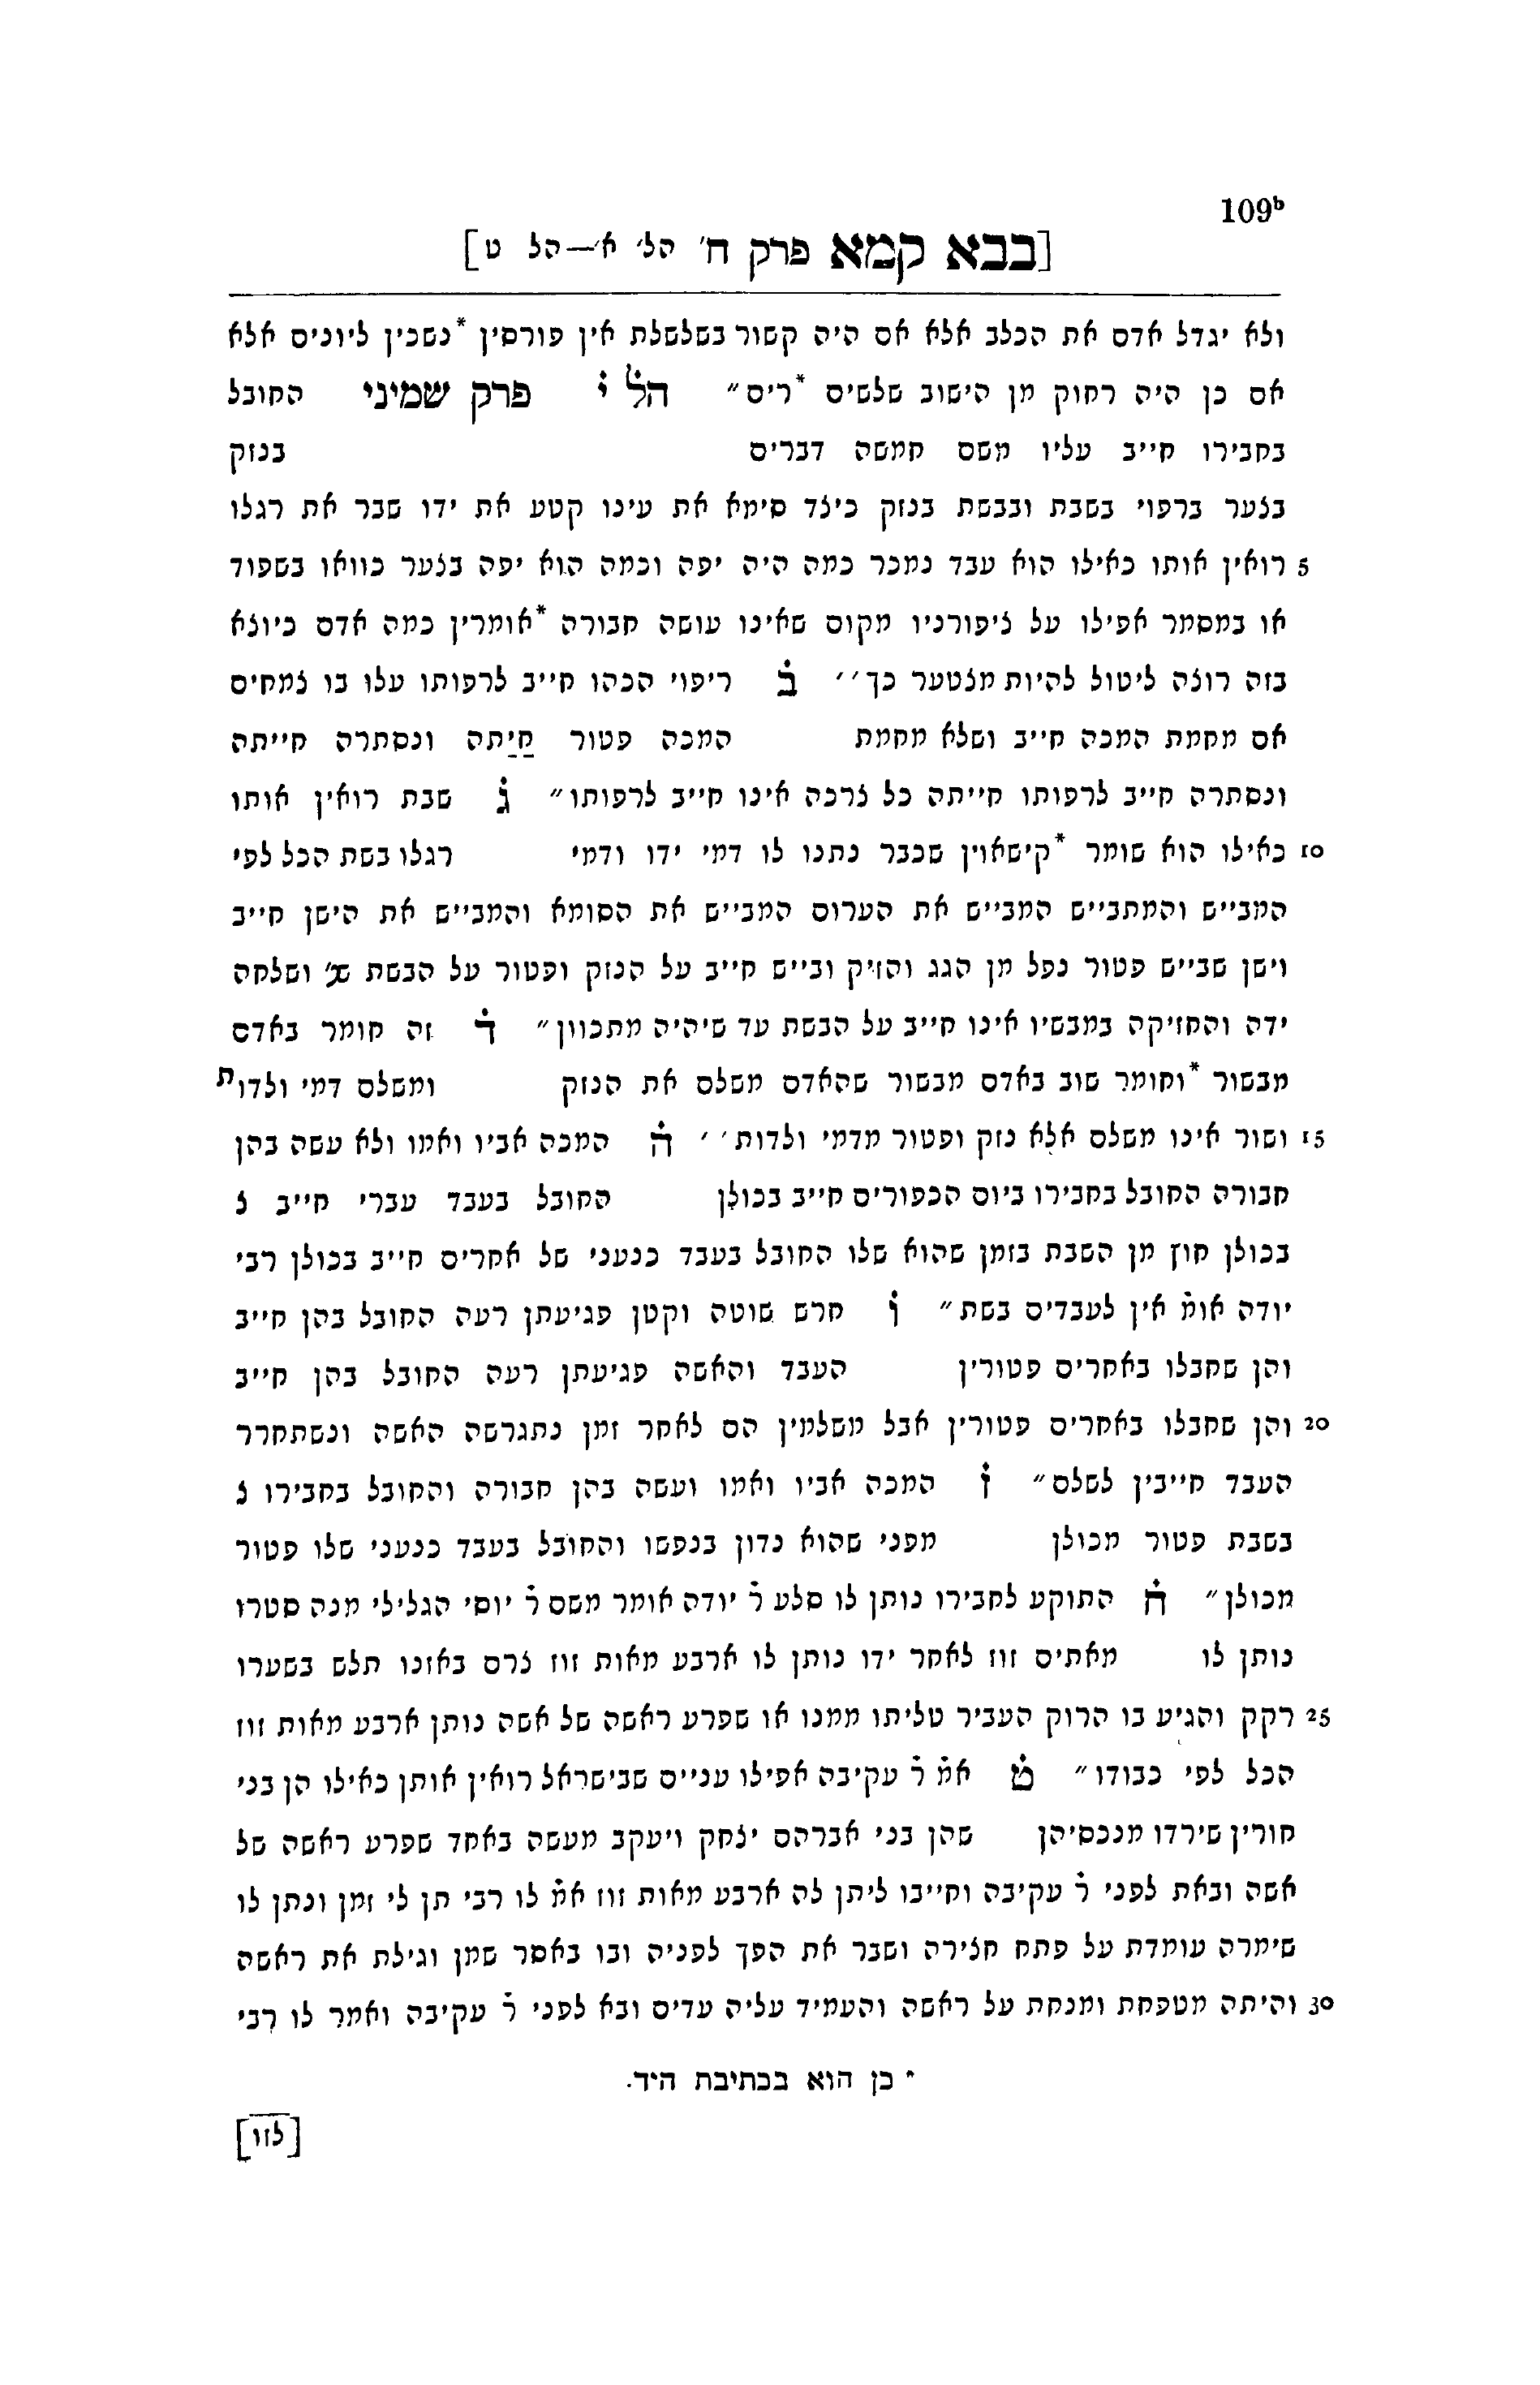 109b
[בבא קמא פרק ח' הל' א'—הל ט]
ולא יגדל אדם את הכלב אלא אם היה קשור בשלשלת אין פורסין *נשבין ליונים אלא
אם כן היה רחוק מן הישוב שלשים *ריס״ הל י פרק שמיני החובל
בחבירו חייב עליו משם חמשה דברים בנזק
בצער ברפוי בשבת ובבשת בנזק כיצד סימא את עינו קטע את ידו שבר את רגלו
5 רואין אותו כאילו הוא עבד נמכר כמה היה יפה וכמה הוא יפה בצער כוואו בשפוד
או במסמר אפילו על ציפורניו מקום שאינו עושה חבורה *אומרין כמה אדם כיוצא
בזה רוצה ליטול להיות מצטער כך׳׳ ב ריפוי הכהו חייב לרפותו עלו בו צמחים
אם מחמת המכה חייב ושלא מחמת המכה פטור חיתה ונסתרה חייתה
ונסתרה חייב לרפותו חייתה כל צרכה אינו חייב לרפותו״ ג שבת רואין אותו
10 כאילו הוא שומר *קישאוין שכבר נתנו לו דמי ידו ודמי רגלו בשת הכל לפי
המבייש והמתבייש המבייש את הערום המבייש את הסומא והמבייש את הישן חייב
וישן שבייש פטור נפל מן הגג והזיק ובייש חייב על הנזק ופטור על הבשת שנ׳ ושלחה
ידה והחזיקה במבשיו אינו חייב על הבשת עד שיהיה מתכוון״ ד זה חומר באדם
מבשור *וחומר שוב באדם מבשור שהאדם משלם את הנזק ומשלם דמי ולדות
15 ושור אינו משלם אלא נזק ופטור מדמי ולדות׳׳ ה המכה אביו ואמו ולא עשה בהן
חבורה החובל בחבירו ביום הכפורים חייב בכולן החובל בעבד עברי חייב צ
בכולן חוץ מן השבת בזמן שהוא שלו החובל בעבד כנעני של אחרים חייב בכולן רבי
יודה אומ אין לעבדים בשת״ ו חרש שוטה וקטן פגיעתן רעה החובל בהן חייב
והן שחבלו באחרים פטורין העבד והאשה פגיעתן רעה החובל בהן חייב
20 והן שחבלו באחרים פטורין אבל משלמין הם לאחר זמן נתגרשה האשה ונשתחרר
העבד חייבין לשלם״ ז המכה אביו ואמו ועשה בהן חבורה והחובל בחבירו צ
בשבת פטור מכולן מפני שהוא נדון בנפשו והחובל בעבד כנעני שלו פטור
מכולן״ ח התוקע לחבירו נותן לו סלע ר יודה אומר משם ר יוסי הגלילי מנה סטרו
נותן לו מאתים זוז לאחר ידו נותן לו ארבע מאות זוז צרם באזנו תלש בשערו
25 רקק והגיע בו הרוק העביר טליתו ממנו או שפרע ראשה של אשה נותן ארבע מאות זוז
הכל לפי כבודו״ ט אמ ר עקיבה אפילו עניים שבישראל רואין אותן כאילו הן בני
חורין שירדו מנכסיהן שהן בני אברהם יצחק ויעקב מעשה באחד שפרע ראשה של
אשה ובאת לפני ר עקיבה וחייבו ליתן לה ארבע מאות זוז אמ לו רבי תן לי זמן ונתן לו
שימרה עומדת על פתח חצירה ושבר את הפך לפניה ובו באסר שמן וגילת את ראשה
30 והיתה מטפחת ומנחת על ראשה והעמיד עליה עדים ובא לפני ר עקיבה ואמר לו רבי
* כן הוא בכתיבת היד.
[לזו]